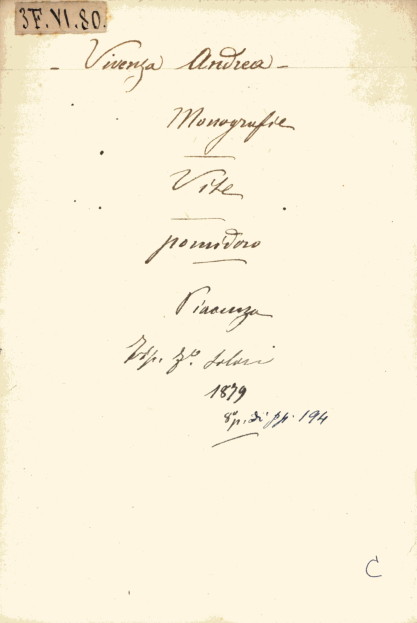 3F.VI.80.
- Vivenza Andrea -
Monografie
Vite
pomidoro
Piacenza
Tip. F.co Solari
1879
8º p. di pp. 194
C